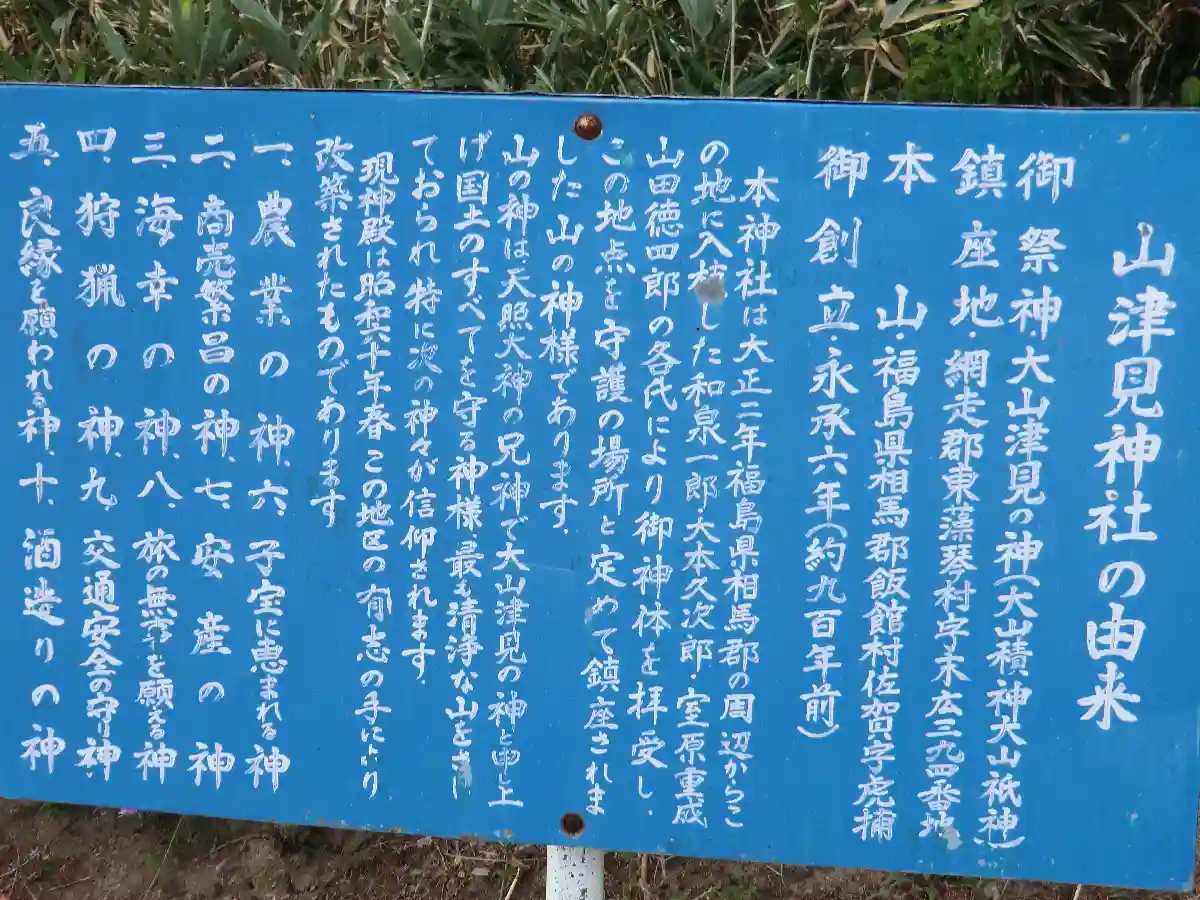 山津見神社の由来
御祭神・大山津見の神(大山積神大山祇神)
鎮座地・網走郡東藻琴村字末広三九四番地
本山・福島県相馬郡飯館村佐賀字虎捕
御創立・永承六年(約九百年前)
本神社は大正二年福島県相馬郡の周辺からこ
の地に入植した和泉一郎・大本久次郎・室原重成
山田徳四郎の各氏により御神体を拝受し・
この地点を守護の場所と定めて鎮座されま
した山の神様であります・
山の神は天照大神の兄神で大山津見の神と申し上
げ国土のすべてを守る神様・最も清浄な山をさし
ておられ特に次の神々が信仰されます・
現神殿は昭和六十年春この地区の有志の手により
改築されたものであります
一、農業の神、六、子宝に恵まれる神
二、商売繁昌の神、七、安産の神
三、海幸の神、八、旅の無事を願える神
四、狩猟の神、九、交通安全の守り神
五、良縁を願われる神、十、酒造りの神